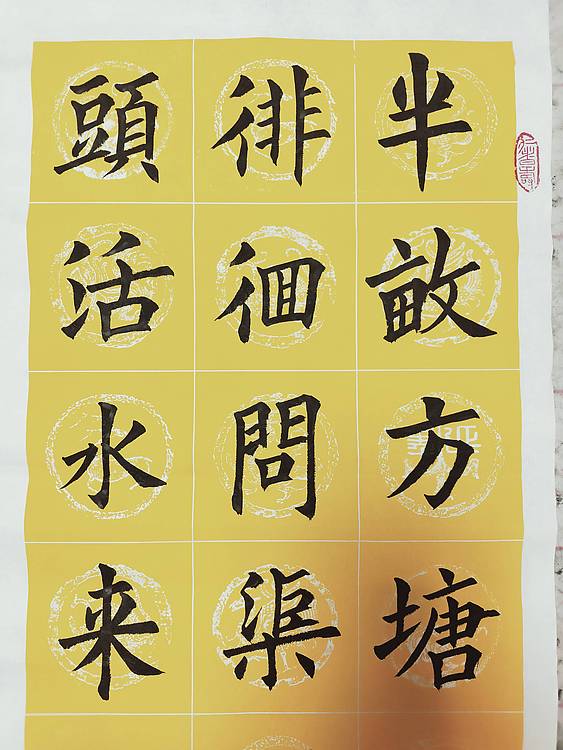 半畝方塘
徘徊問渠
頭活水来